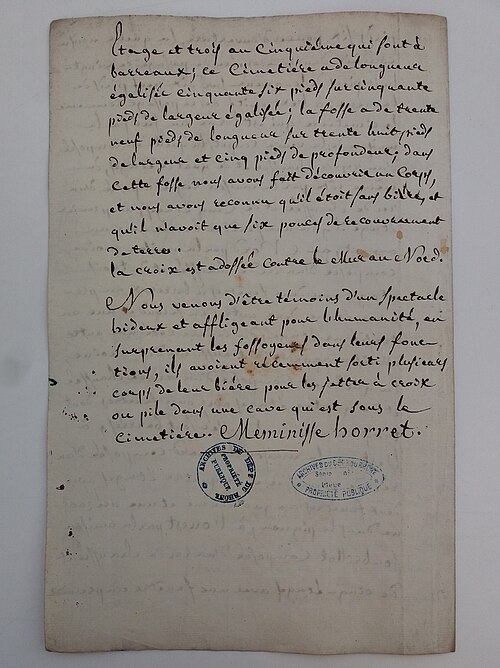 Etage et trois au Cinquiéme qui sont à
barreaux; ce Cimetiére a de longueur
égalisée Cinquante six pieds sur cinquante
pieds de largeur égalisée; la fosse a de trente
neuf pieds de longueur sur trente huit pieds
de largeur et cinq pieds de profondeur; dans
Cette fosse nous avons fait découvrir un Corps,
et nous avons reconnu qu'il étoit sans biére, et
qu'il n'avoit que six pouces de recouvrement
de terre.
la croix est adossée contre le Mur au Nord.
Nous venons d'être témoins d'un spectacle
hideux et affligeant pour l'humanité, en
surprenant les fossoyeurs dans leurs fonc-
tions, ils avoient récemment sorti plusieurs
corps de leur biére pour les jetter à croix
ou pile dans une cave qui est sous le
Cimetiére. Meminisse horret.
ARCHIVES DU DEPT DU RHONE
PROPRIÉTÉ
PUBLIQUE
ARCHIVES DU DEPT DU RHONE
PROPRIÉTÉ PUBLIQUE